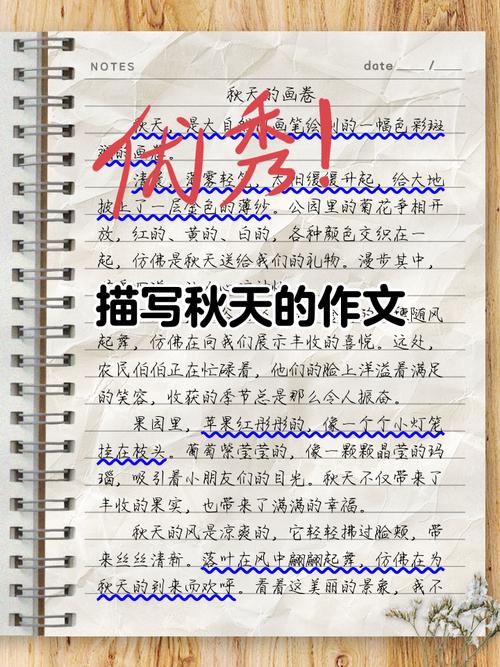 NOTES
date / /
秋天的画卷
秋天，是大自然用画笔绘制的一幅色彩斑
的画卷。
清晨，薄雾轻笼，太阳缓缓升起，给大地
披上了一层金色的薄纱。公园里的菊花争相开
放，红的、黄的、白的，各种颜色交织在一
起，仿佛是秋天送给我们的礼物。漫步其中，
优秀！
描写秋天的作文
随风
起舞，仿佛在向我们展示丰收的喜悦。远处，
农民伯伯正在忙碌着，他们的脸上洋溢着满足
的笑容，收获的季节总是那么令人振奋。
果园里，苹果红彤彤的，像一个个小灯笼
挂在枝头。葡萄紫莹莹的，像一颗颗晶莹的玛
瑙，吸引着小朋友们的目光。秋天不仅带来了
丰收的果实，也带来了满满的幸福。
秋天的风是凉爽的，它轻轻拂过脸颊，带
来丝丝清新。落叶在风中翩翩起舞，仿佛在为
秋天的到来而欢呼。看着这美丽的景象，我不